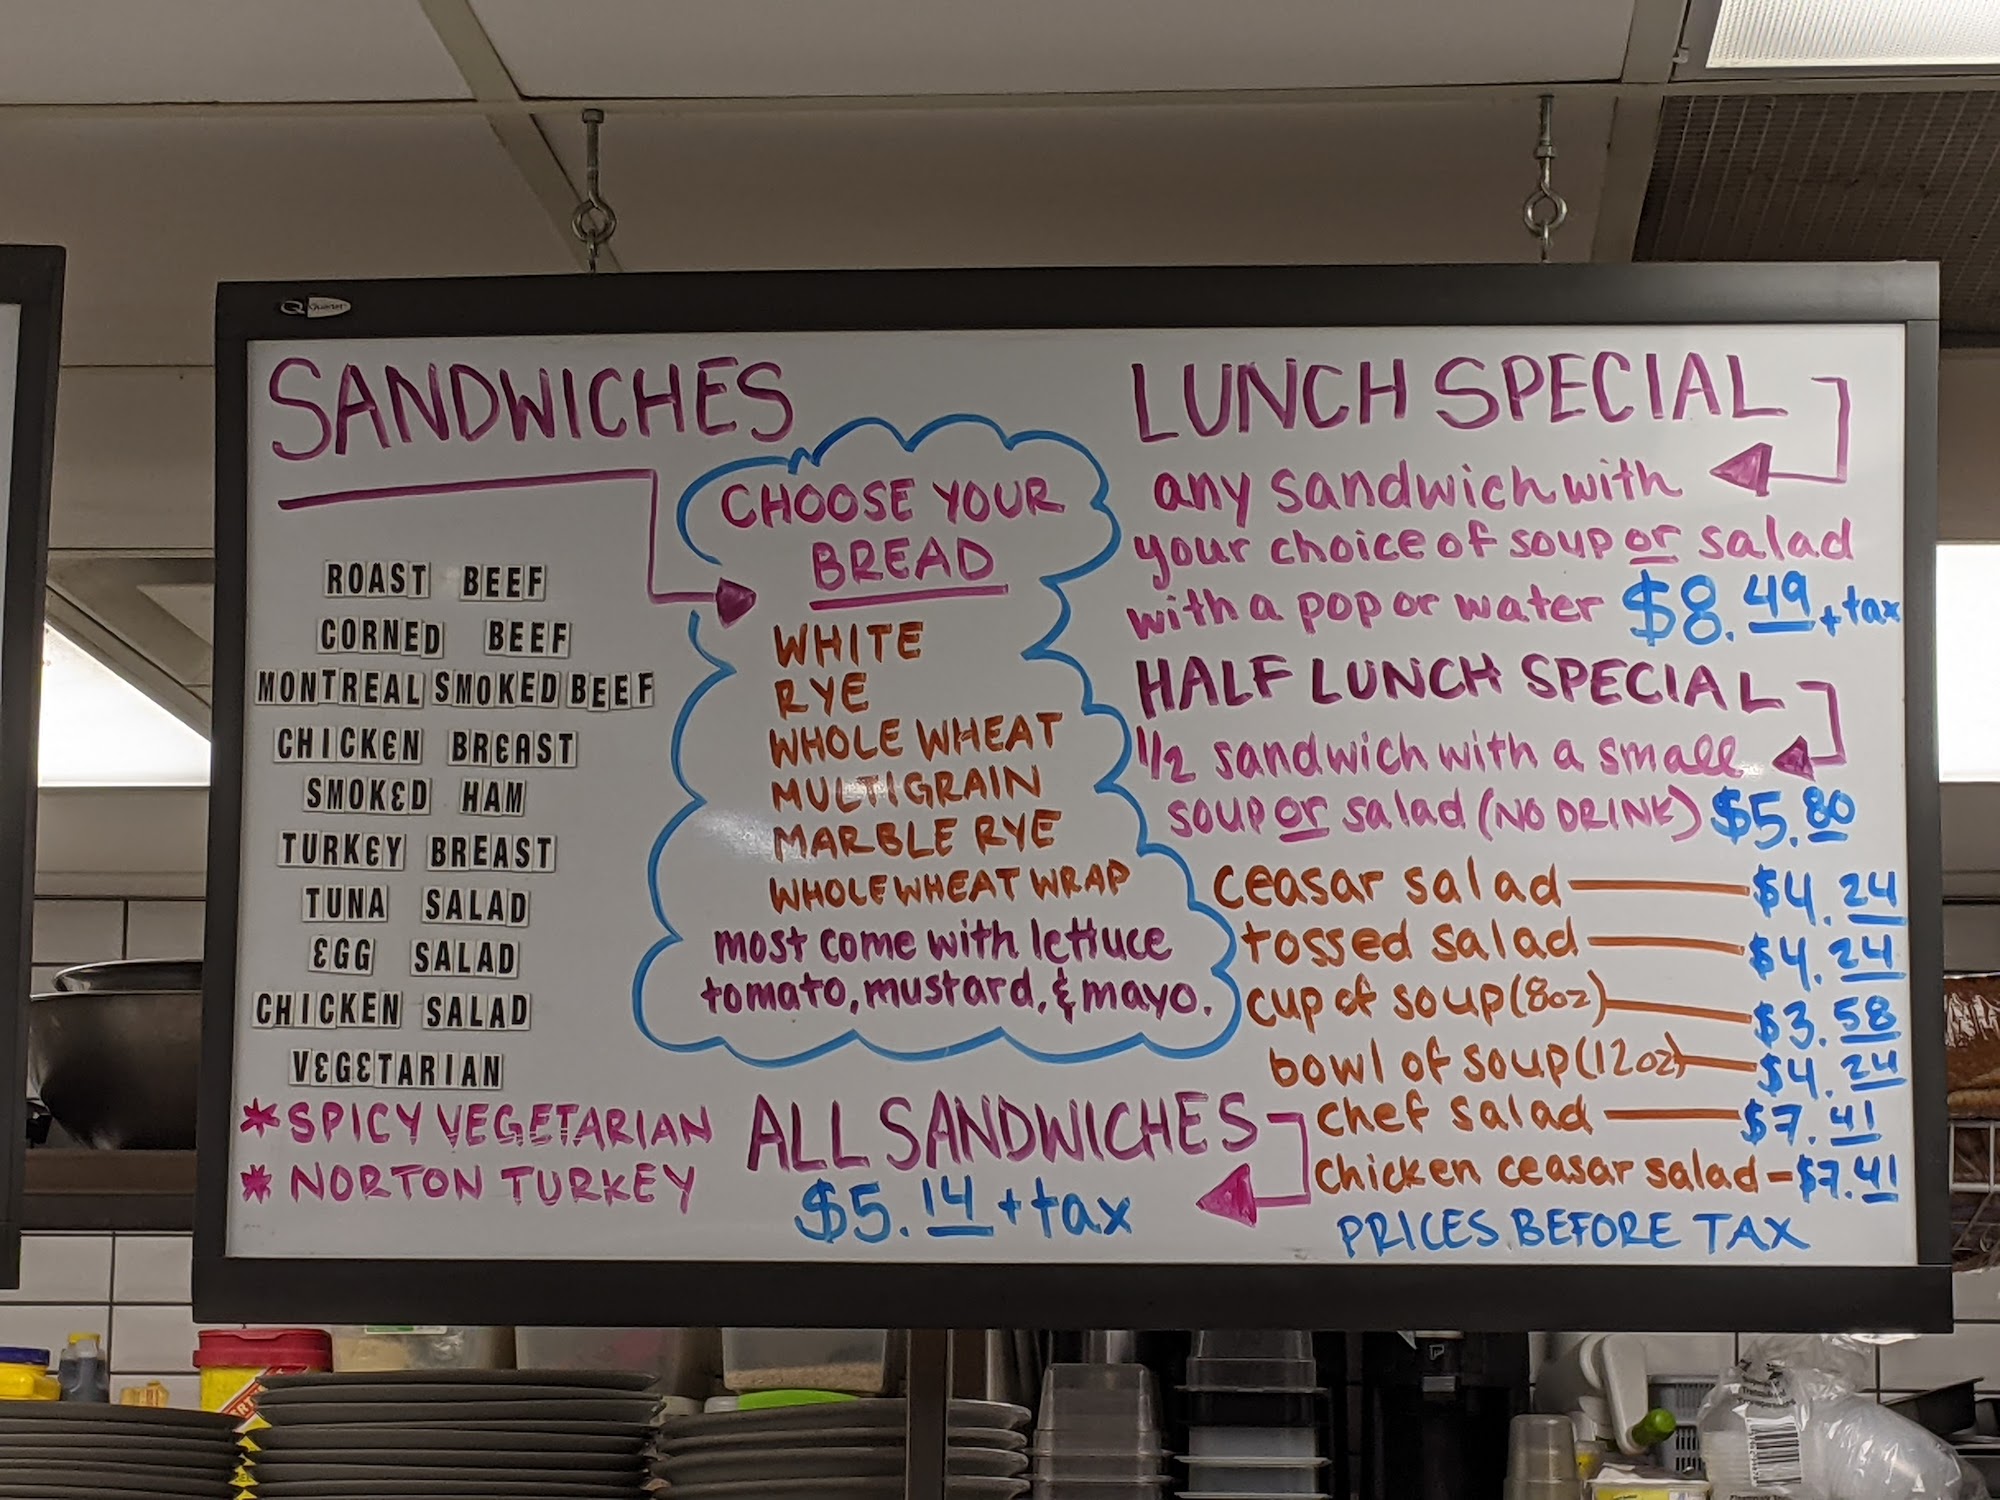 Quartet
SANDWICHES
ROAST BEEF
CORNED BEEF
MONTREAL SMOKED BEEF
CHICKEN BREAST
SMOKED HAM
TURKEY BREAST
TUNA SALAD
EGG SALAD
CHICKEN SALAD
VEGETARIAN
*SPICY VEGETARIAN
*NORTON TURKEY
CHOOSE YOUR
BREAD
WHITE
RYE
WHOLE WHEAT
MULTIGRAIN
MARBLE RYE
WHOLE WHEAT WRAP
most come with lettuce
tomato, mustard, & mayo.
ALL SANDWICHES
$5.14 + tax
LUNCH SPECIAL
any sandwich with
your choice of soup or salad
with a pop or water $8.49 + tax
HALF LUNCH SPECIAL
1/2 sandwich with a small
soup or salad (NO DRINK) $5.80
ceasar salad $4.24
tossed salad $4.24
cup of soup (8oz) $3.58
bowl of soup (12oz) $4.24
chef salad $7.41
chicken ceasar salad - $7.41
PRICES BEFORE TAX